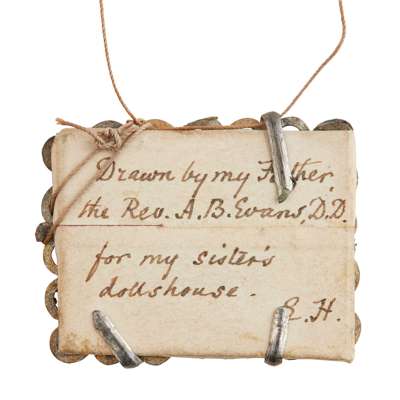 Drawn by my Father,
the Rev. A. B. Evans, D.D.
for my sister's
dollshouse.
E. H.